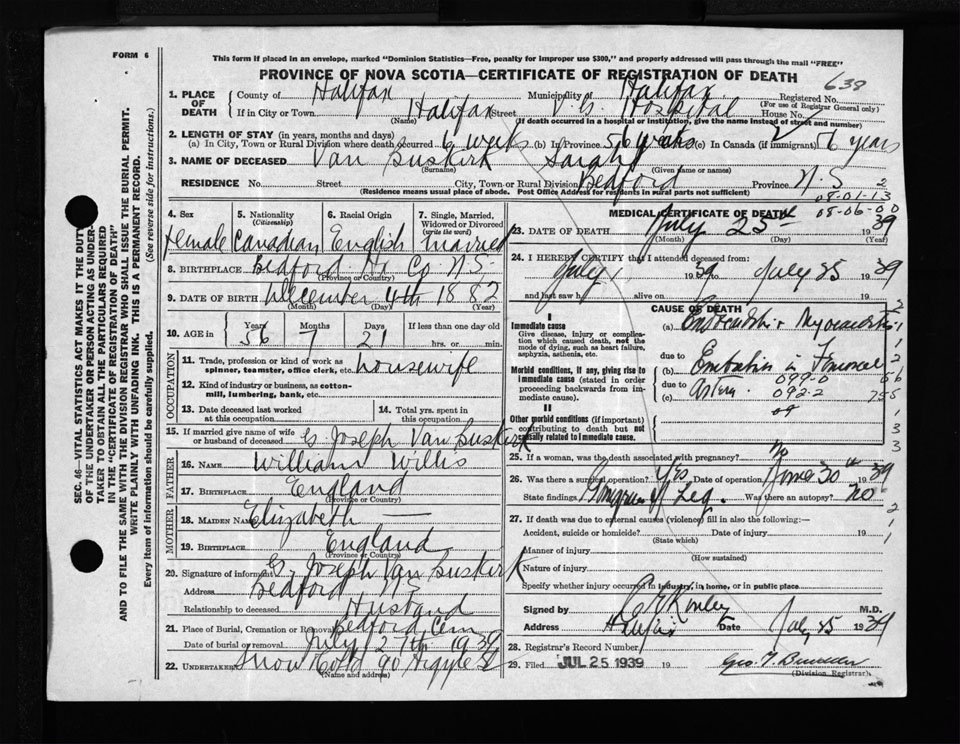 FORM 6
This form if placed in an envelope, marked "Dominion Statistics—Free, penalty for improper use $300," and properly addressed will pass through the mail "FREE"
PROVINCE OF NOVA SCOTIA—CERTIFICATE OF REGISTRATION OF DEATH
638
1. PLACE OF DEATH County of Halifax Municipality of Halifax Registered No.
(For use of Registrar General only)
If in City or Town Halifax Street V.G. Hospital House No.
(Name) (If death occurred in a hospital or institution, give the name instead of street and number)
2. LENGTH OF STAY (in years, months and days)
(a) In City, Town or Rural Division where death occurred 6 weeks (b) In Province 56 (c) In Canada (if immigrant) 56 years
3. NAME OF DECEASED Van Buskirk Sarah
(Surname) (Given name or names)
RESIDENCE No. Street City, Town or Rural Division Bedford Province N.S
(Residence means usual place of abode. Post Office Address for residents in rural parts not sufficient)
2
08-01-13
08-06-00
4. Sex 5. Nationality (Citizenship) 6. Racial Origin 7. Single, Married, Widowed or Divorced (write the word)
Female Canadian English married
8. BIRTHPLACE Bedford Hx Co. N.S.
(Province or Country)
9. DATE OF BIRTH December 4th 1882
(Month) (Day) (Year)
10. AGE in Years Months Days If less than one day old
56 7 21 hrs. or min.
OCCUPATION
11. Trade, profession or kind of work as spinner, teamster, office clerk, etc. housewife
12. Kind of industry or business, as cotton-mill, lumbering, bank, etc.
13. Date deceased last worked at this occupation
14. Total yrs. spent in this occupation
15. If married give name of wife or husband of deceased G. Joseph Van Buskirk
FATHER
16. NAME William Willis
17. BIRTHPLACE England
(Province or Country)
MOTHER
18. MAIDEN NAME Elizabeth —
19. BIRTHPLACE England
(Province or Country)
20. Signature of informant G. Joseph Van Buskirk
Address Bedford N.S.
Relationship to deceased Husband
21. Place of Burial, Cremation or Removal Bedford Cem
Date of burial or removal July 27th 1939
22. UNDERTAKER Snow & Co Ltd 90 Argyle St
(Name and address)
MEDICAL CERTIFICATE OF DEATH
23. DATE OF DEATH July 25 1939
(Month) (Day) (Year)
24. I HEREBY CERTIFY that I attended deceased from:
July 1 1939 to July 25 1939
and last saw h alive on 19
CAUSE OF DEATH
I
Immediate cause
Give disease, injury or complication which caused death, not the mode of dying, such as heart failure, asphyxia, asthenia, etc.
(a) Endocarditis & Myocarditis
due to
Morbid conditions, if any, giving rise to immediate cause (stated in order proceeding backwards from immediate cause).
(b) Embolus in Femoral
due to 099-0
(c) Artery 092-2
II
Other morbid conditions (if important) contributing to death but not causally related to immediate cause.
25. If a woman, was the death associated with pregnancy? no
26. Was there a surgical operation? Yes Date of operation June 30th 1939
State findings Gangrene of Leg. Was there an autopsy? no
27. If death was due to external causes (violence) fill in also the following:—
Accident, suicide or homicide? Date of injury 19
(State which)
Manner of injury
(How sustained)
Nature of injury
Specify whether injury occurred in industry, in home, or in public place
Signed by M.D.
Address Halifax Date July 25 1939
28. Registrar's Record Number
29. Filed JUL 25 1939 19
(Division Registrar)
SEC. 46—VITAL STATISTICS ACT MAKES IT THE DUTY
OF THE UNDERTAKER OR PERSON ACTING AS UNDER-
TAKER TO OBTAIN ALL THE PARTICULARS REQUIRED
IN THE "CERTIFICATE OF REGISTRATION OF DEATH"
AND TO FILE THE SAME WITH THE DIVISION REGISTRAR WHO SHALL ISSUE THE BURIAL PERMIT.
WRITE PLAINLY WITH UNFADING INK. THIS IS A PERMANENT RECORD.
Every item of information should be carefully supplied. (See reverse side for instructions.)